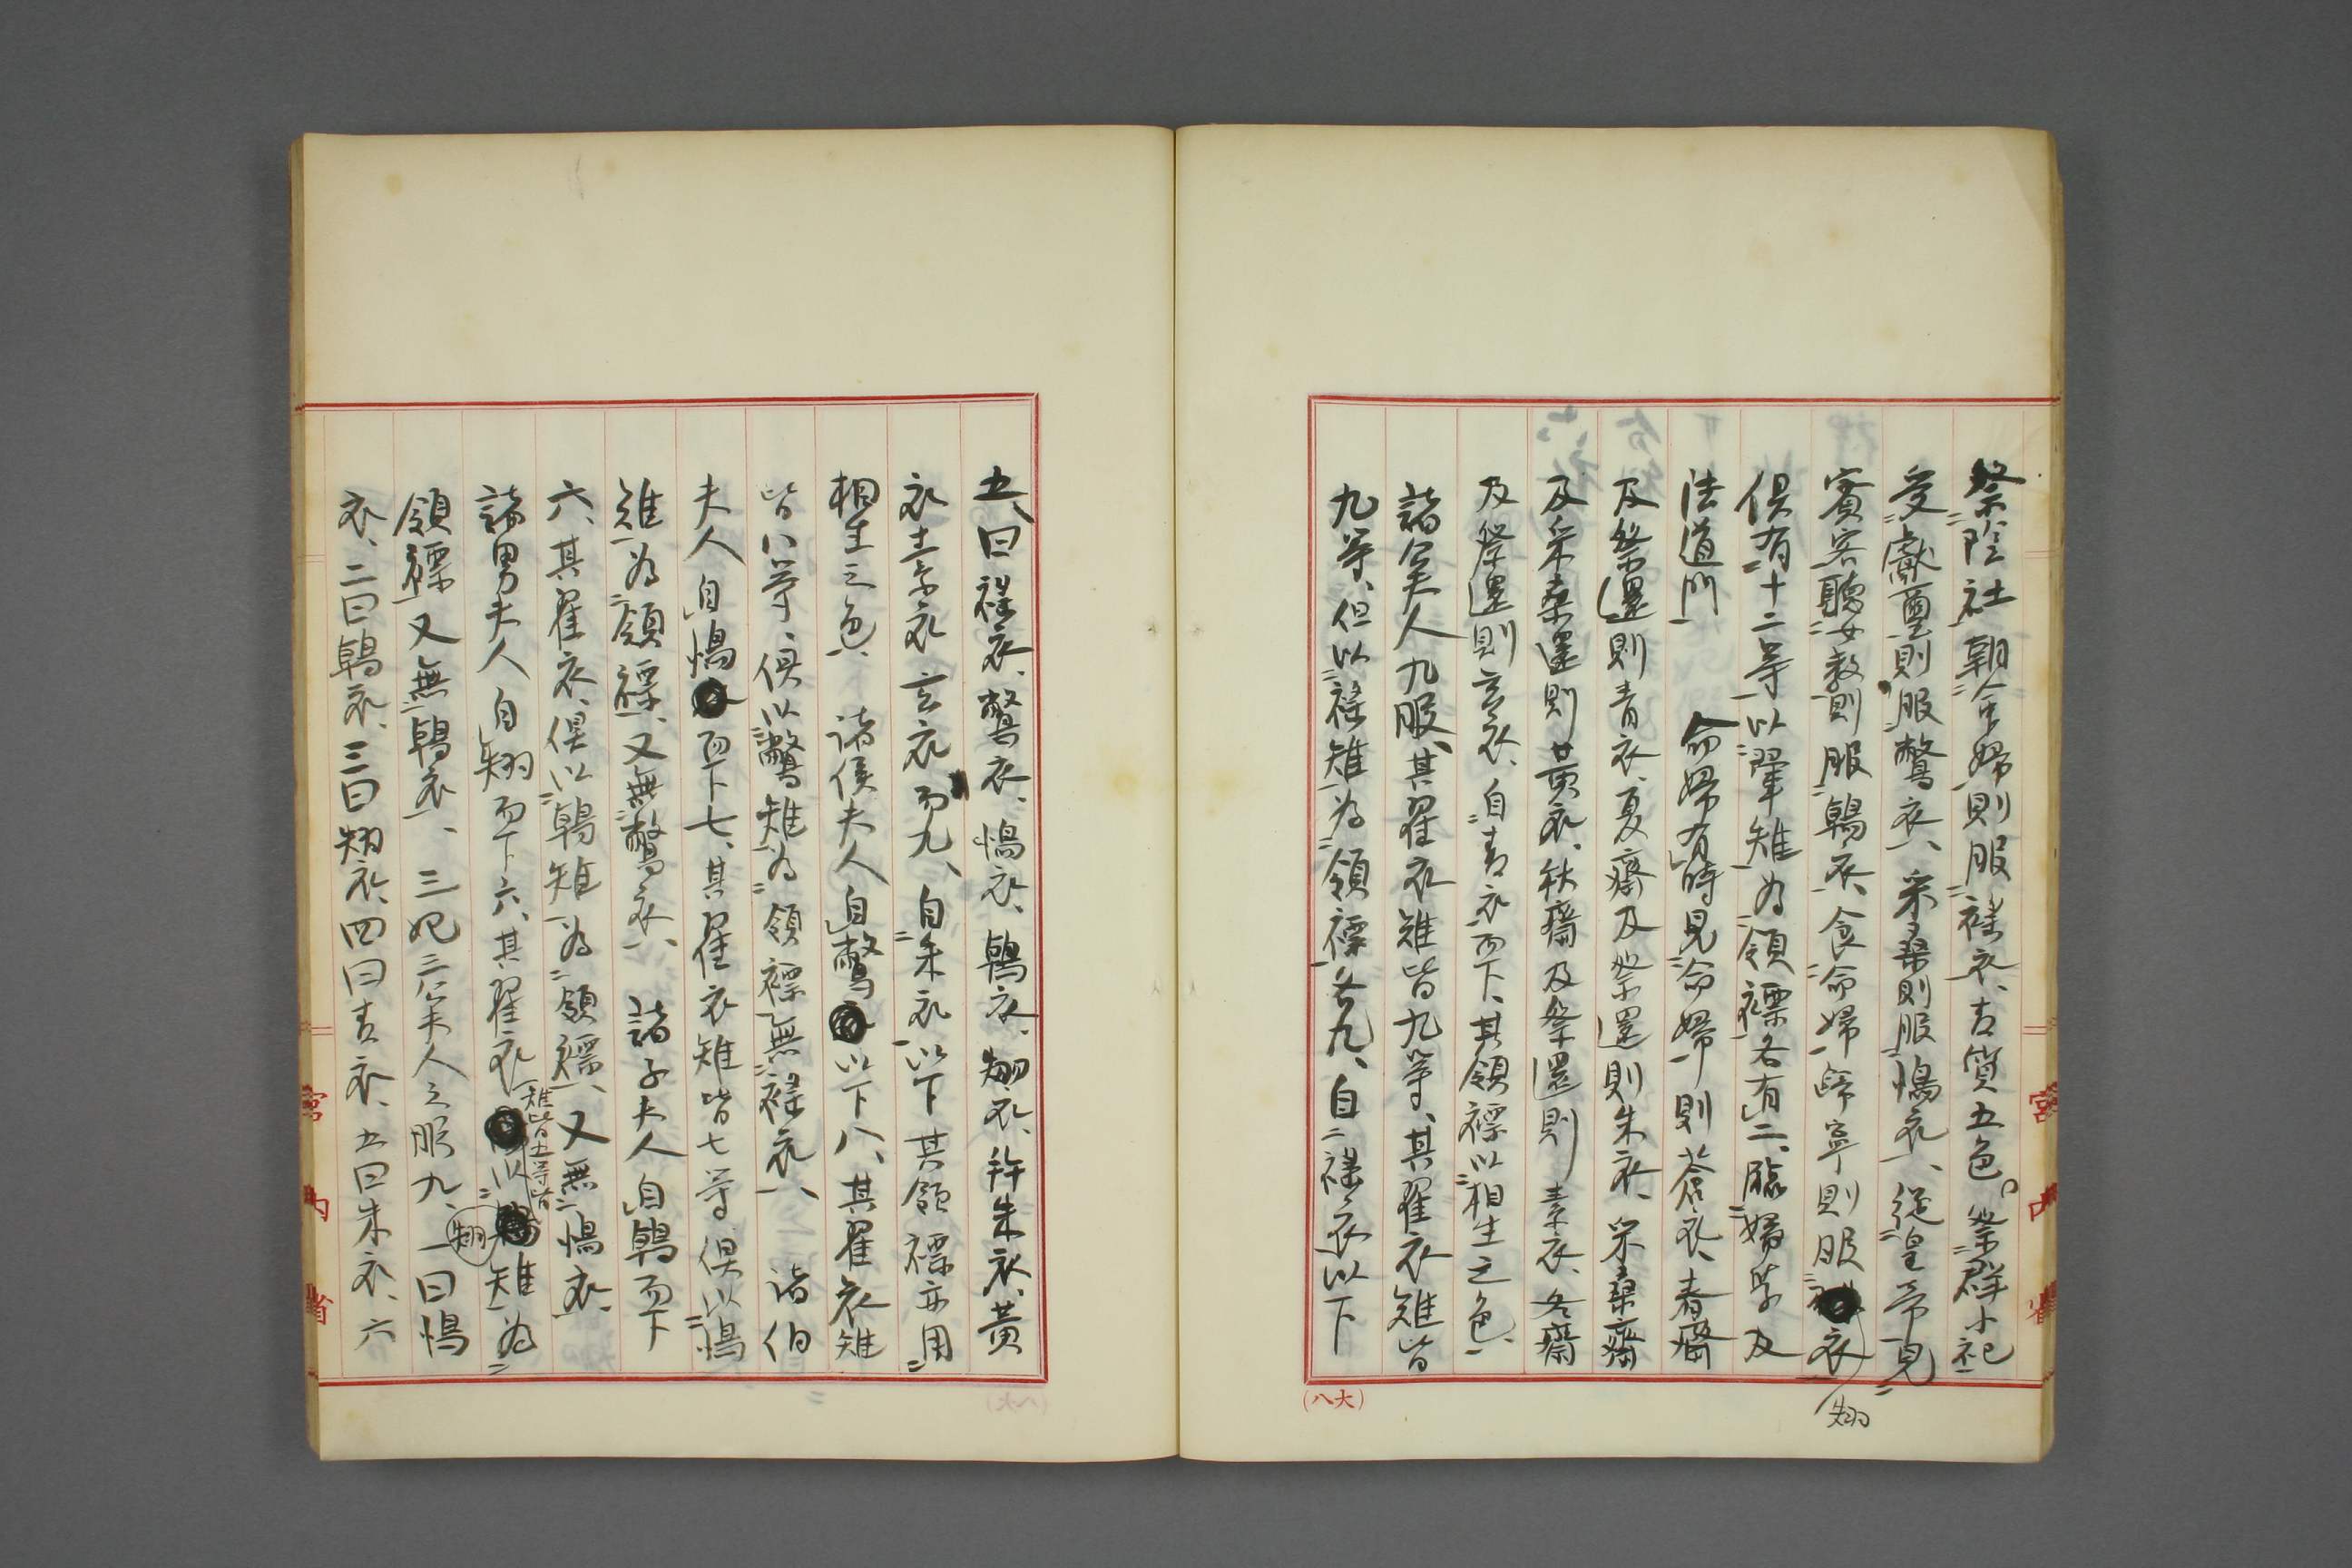 祭陰社朝命婦則服褘衣、古質五色。祭群小祀
受獻璽則服鷩衣、采桑則服鳪衣、從皇帝見
賓客聽女教則服鵫衣、食命婦歸寧則服衣
翙
俱有十二等以翬雉為領褾各有二、臨婦学及
法道門　命婦有時見命婦則蒼衣、春齋
及祭還則青衣、夏齋及祭還則朱衣、采桑齋
及采桑還則黃衣、秋齋及祭還則素衣、冬齋
及祭還則玄衣、自青衣而下、其領褾以相生之色、
諸公夫人九服、其翟衣雉皆九等、其翟衣雉皆
九等、但以褕雉為領褾各九、自褕衣以下
五、曰褕衣、鷩衣、鳪衣、鵫衣、翙衣、并朱衣、黃
衣、素衣、玄衣而九、自朱衣以下其領褾亦用
相生之色、諸侯夫人自鷩以下八、其翟衣雉
皆八等、俱以鷩雉為領褾無褕衣、諸伯
夫人自鳪而下七、其翟衣雉皆七等俱以鳪
雉為領褾、又無鷩衣、諸子夫人自鵫而下
六、其翟衣、俱以鵫雉為領褾、又無鳪衣、
諸男夫人自翙而下六、其翟衣雉皆五等皆以翙雉為
領褾又無鵫衣、三妃三公夫人之服九、一曰鳪
衣、二曰鵫衣、三曰翙衣、四曰青衣、五曰朱衣、六
宮内省
宮内省
（八大）